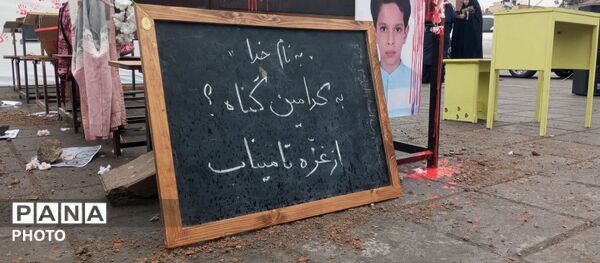 « به نام خدا »
به کدامین گناه ؟
از غزّه تا میناب
PANA
PHOTO